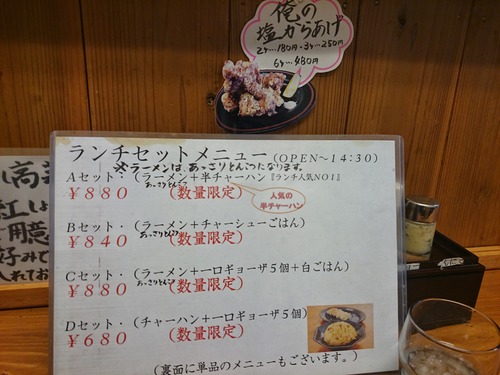 俺の
塩からあげ
2ヶ…180円・3ヶ…250円
6ヶ…480円
ランチセットメニュー(OPEN〜14:30)
※ラーメンは、あっさりとんこつになります。
Aセット・(ラーメン+半チャーハン『ランチ人気NO1』
あっさりとんこつ
¥880 (数量限定)
人気の
半チャーハン
Bセット・(ラーメン+チャーシューごはん)
あっさりとんこつ
¥840 (数量限定)
Cセット・(ラーメン+一口ギョーザ5個+白ごはん)
あっさりとんこつ
¥880 (数量限定)
Dセット・(チャーハン+一口ギョーザ5個)
¥680 (数量限定)
(裏面に単品のメニューもございます。)
紅しょ
用意
好みで
入れてお